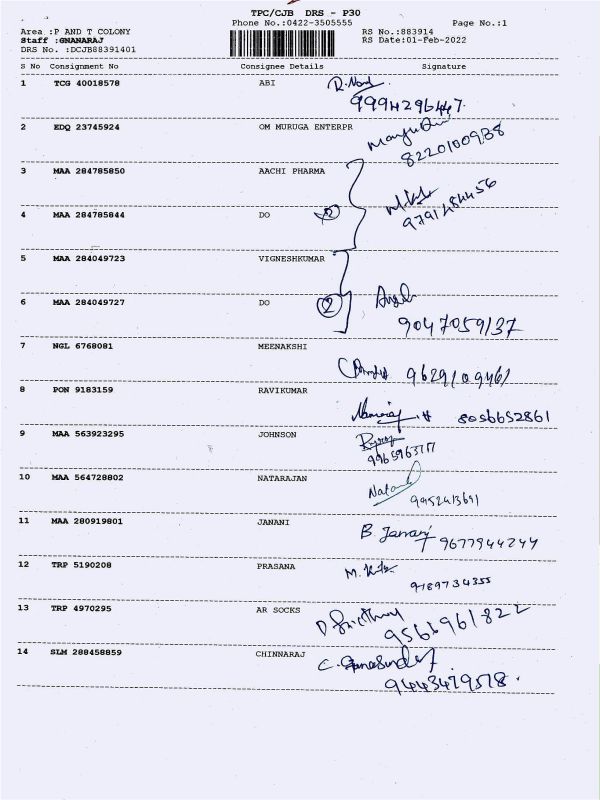 TPC/CJB DRS - P30
Phone No.:0422-3505555 Page No.:1
Area :P AND T COLONY RS No.:883914
Staff :GNANARAJ RS Date:01-Feb-2022
DRS No. :DCJB88391401
S No Consignment No Consignee Details Signature
1 TCG 40018578 ABI
9994296447.
2 EDQ 23745924 OM MURUGA ENTERPR
8220100938
3 MAA 284785850 AACHI PHARMA
4 MAA 284785844 DO 2
9791484456
5 MAA 284049723 VIGNESHKUMAR
6 MAA 284049727 DO 2
9047059137
7 NGL 6768081 MEENAKSHI
9629109461
8 PON 9183159 RAVIKUMAR
8056652861
9 MAA 563923295 JOHNSON
10 MAA 564728802 NATARAJAN
9952413691
11 MAA 280919801 JANANI
B. Janani 9677944244
12 TRP 5190208 PRASANA
9789734355
13 TRP 4970295 AR SOCKS
9566961822
14 SLM 288458859 CHINNARAJ
9443479578.